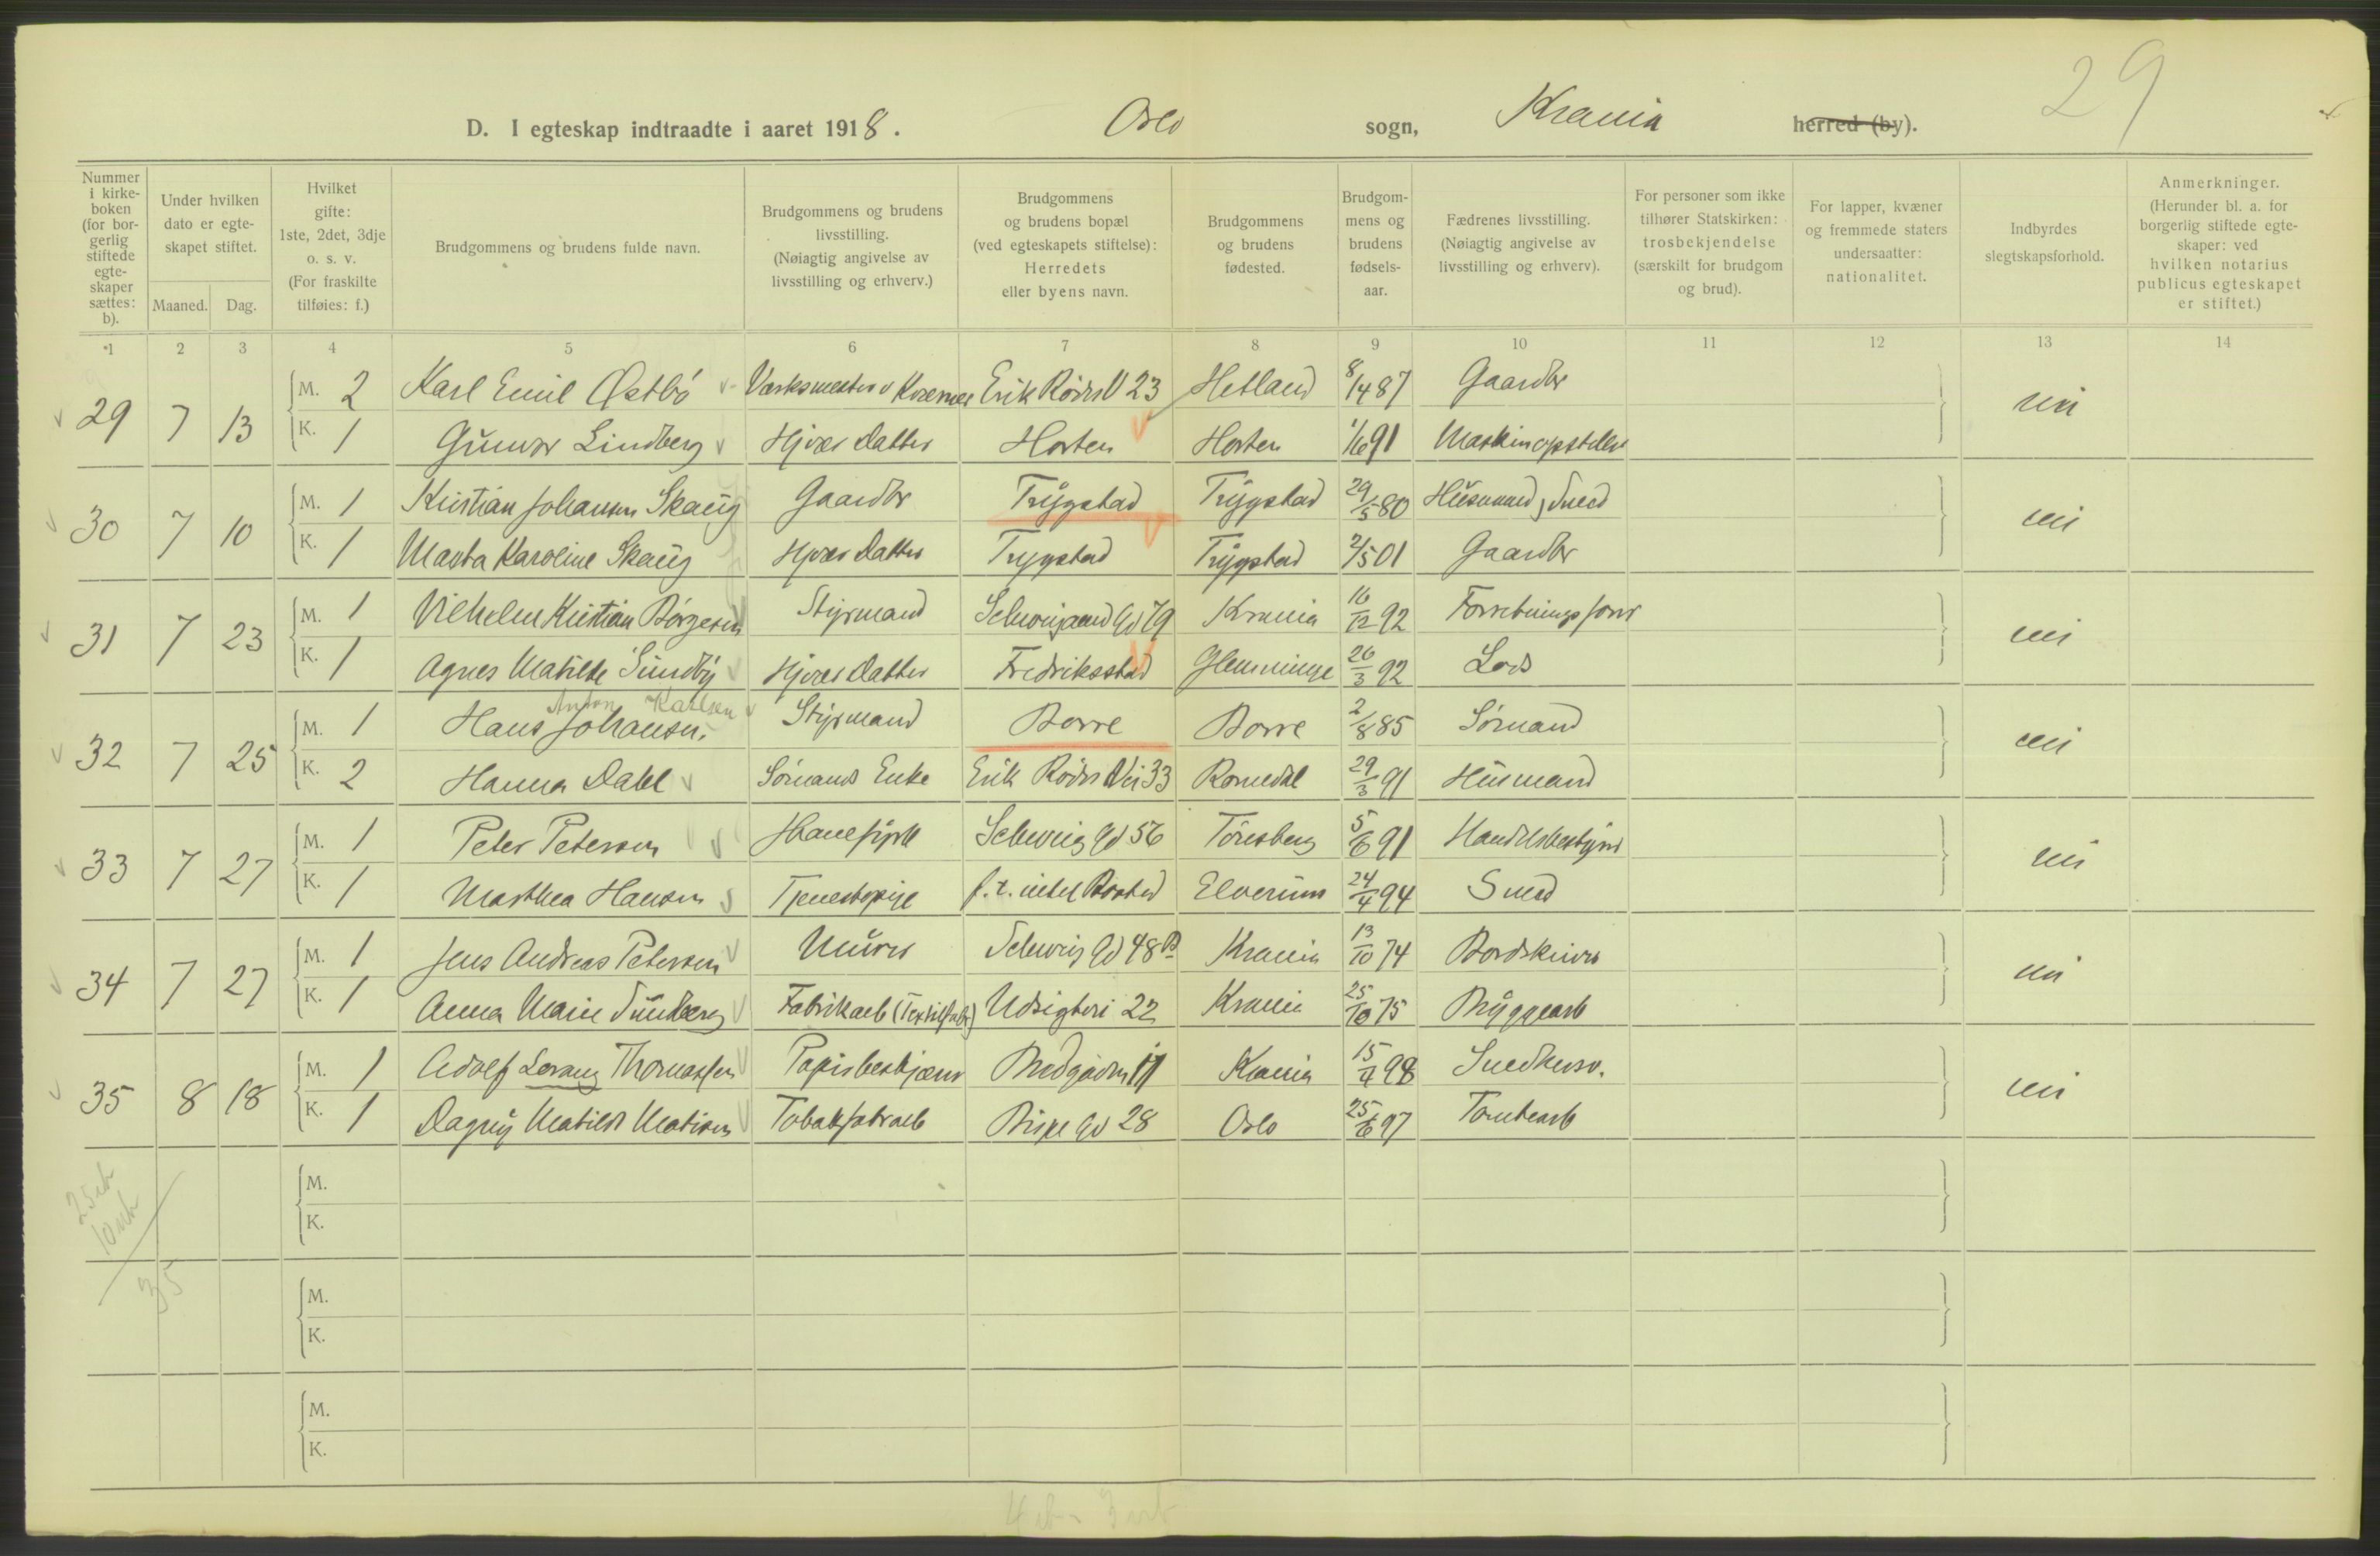 29
D. I egteskap indtraadte i aaret 1918. Oslo sogn, Krania herred (by).
Nummer i kirke-boken (for bor-gerlig stiftede egte-skaper sættes: b).
Under hvilken dato er egte-skapet stiftet.
Maaned. Dag.
Hvilket gifte: 1ste, 2det, 3dje o. s. v. (For fraskilte tilføies: f.)
Brudgommens og brudens fulde navn.
Brudgommens og brudens livsstilling. (Nøiagtig angivelse av livsstilling og erhverv.)
Brudgommens og brudens bopæl (ved egteskapets stiftelse): Herredets eller byens navn.
Brudgommens og brudens fødested.
Brudgom-mens og brudens fødsels-aar.
Fædrenes livsstilling. (Nøiagtig angivelse av livsstilling og erhverv).
For personer som ikke tilhører Statskirken: trosbekjendelse (særskilt for brudgom og brud).
For lapper, kvæner og fremmede staters undersaatter: nationalitet.
Indbyrdes slegtskapsforhold.
Anmerkninger. (Herunder bl. a. for borgerlig stiftede egte-skaper: ved hvilken notarius publicus egteskapet er stiftet.)
1 2 3 4 5 6 7 8 9 10 11 12 13 14
29 7 13 M. 2 Karl Emil Østbö Erik Rödrs V 23 Hetland 8/4 87 Gaardbr nei
K. 1 Gunvor Lindberg Hjvær Datter Horten Horten 1/6 91 Maskinopstiller
30 7 10 M. 1 Kristian Johansen Skaug Gaardbr Trygstad Trygstad 29/5 80 Husmand, Smed nei
K. 1 Marta Karoline Skaug Hjvær Datter Trygstad Trygstad 2/5 01 Gaardbr
31 7 23 M. 1 Vilhelm Kristian Börgesen Styrmand Schweigaard Gd 79 Krania 16/12 92 Forretningsförer nei
K. 1 Agnes Matilde Sundby Hjvær Datter Fredriksstad Glemminge 26/3 92 Lods
Anton Karlsen
32 7 25 M. 1 Hans Johansen. Styrmand Borre Borre 2/8 85 Sömand nei
K. 2 Hanna Dahl Sömands Enke Erik Rödrs Vei 33 Romedal 29/3 91 Husmand
33 7 27 M. 1 Peter Petersen Schweig Gd 56 Tönsberg 5/6 91 Handelsbestyrer nei
K. 1 Marthea Hansen Tjenestepige f. t. uten Bosted Elverum 24/4 94 Smed
34 7 27 M. 1 Jens Andreas Petersen Murer Schweig Gd 48 B Krania 13/10 74 Bordskriver nei
K. 1 Anna Marie Sundberg Fabrikarb (Textilfabr) Udsigten 22 Krania 25/10 75 Bryggearb
35 8 18 M. 1 Adolf Lorang Thomassen Papirbeskjærer Bredgaden 11 Krania 15/4 98 Snedkersv. nei
K. 1 Dagny Matilde Matisen Tobakfabrarb Bispe Gd 28 Oslo 25/6 97 Tomtearb
M.
K.
35
M.
K.
M.
K.